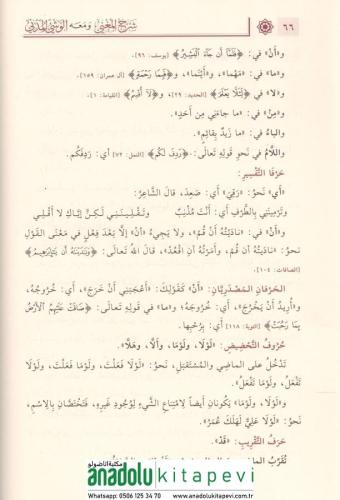 ٦٦ شرح المغني ومعه الوشي المدني
و«أَنْ» في: ﴿فَلَمَّا أَن جَاءَ الْبَشِيرُ﴾ [يوسف: ٩٦].
و«ما» في: «مَهْمَا»، و«أَيْنَمَا»، و﴿فَبِمَا رَحْمَةٍ﴾ [آل عمران: ١٥٩].
و«لا» في ﴿لِئَلَّا يَعْلَمَ﴾ [الحديد: ٢٩]، و﴿لَا أُقْسِمُ﴾ [القيامة: ١].
و«مِنْ» في: «ما جاءَني مِن أَحَدٍ».
والباءُ في: «ما زَيْدٌ بِقائِمٍ».
واللّامُ في نَحوِ قَولِه تَعالَى: ﴿رَدِفَ لَكُم﴾ [النمل: ٧٢] أي: رَدِفَكُم.
حَرْفَا التَّفْسِيرِ:
«أَي» نَحوُ: «رَقِيَ» أَي: صَعِدَ، قالَ الشّاعِرُ:
وَتَرْمِينَنِي بِالطَّرْفِ أَي: أَنْتَ مُذْنِبٌ وَتَقْلِينَنِي لَكِنَّ إِيَّاكِ لَا أَقْلِي
و«أَنْ» في: «نادَيْتُهُ أَنْ قُمْ»، ولا يَجِيءُ «أَنْ» إلَّا بَعْدَ فِعْلٍ في مَعْنَى القَوْلِ
نَحوُ: «نادَيتُهُ أَن قُمْ، وأَمَرْتُهُ أَنِ اقْعُدْ»، قالَ اللهُ تَعالَى: ﴿وَنَدَيْنَاهُ أَن يَا إِبْرَاهِيمُ﴾
[الصافات: ١٠٤].
الحَرْفانِ المَصْدَرِيَّانِ: «أَنْ» كَقَوْلِكَ: «أَعْجَبَنِي أَنْ خَرَجَ» أَي: خُرُوجُهُ،
و«أُرِيدُ أَنْ يَخْرُجَ»، أَي: خُرُوجَهُ؛ و«ما» في قَولِهِ تَعالَى: ﴿ضَاقَتْ عَلَيْهِمُ الْأَرْضُ
بِمَا رَحُبَتْ﴾ [التوبة: ١١٨] أَي: بِرُحْبِها.
حُرُوفُ التَّحْضِيضِ: «لَوْلَا، ولَوْمَا، وأَلَّا، وهَلَّا».
تَدْخُلُ على الماضِي والمُسْتَقْبَلِ، نَحوُ: «لَوْلَا فَعَلْتَ، ولَوْمَا فَعَلْتَ، ولَوْلَا
تَفْعَلُ، ولَوْمَا تَفْعَلُ».
و«لَوْلَا، ولَوْمَا» يَكُونانِ أَيضاً لِامْتِناعِ الشَّيءِ لِوُجُودِ غَيرِهِ، فَتَخْتَصَّانِ بِالِاسْمِ،
نَحوُ: «لَوْلَا عَلِيٌّ لَهَلَكَ عُمَرُ».
حَرْفُ التَّقْرِيبِ: «قَدْ».
تُقَرِّبُ
مكتبة اناضولو
anadolu kitapevi
Whatsapp: 0506 125 34 70 www.anadolukitapevi.com